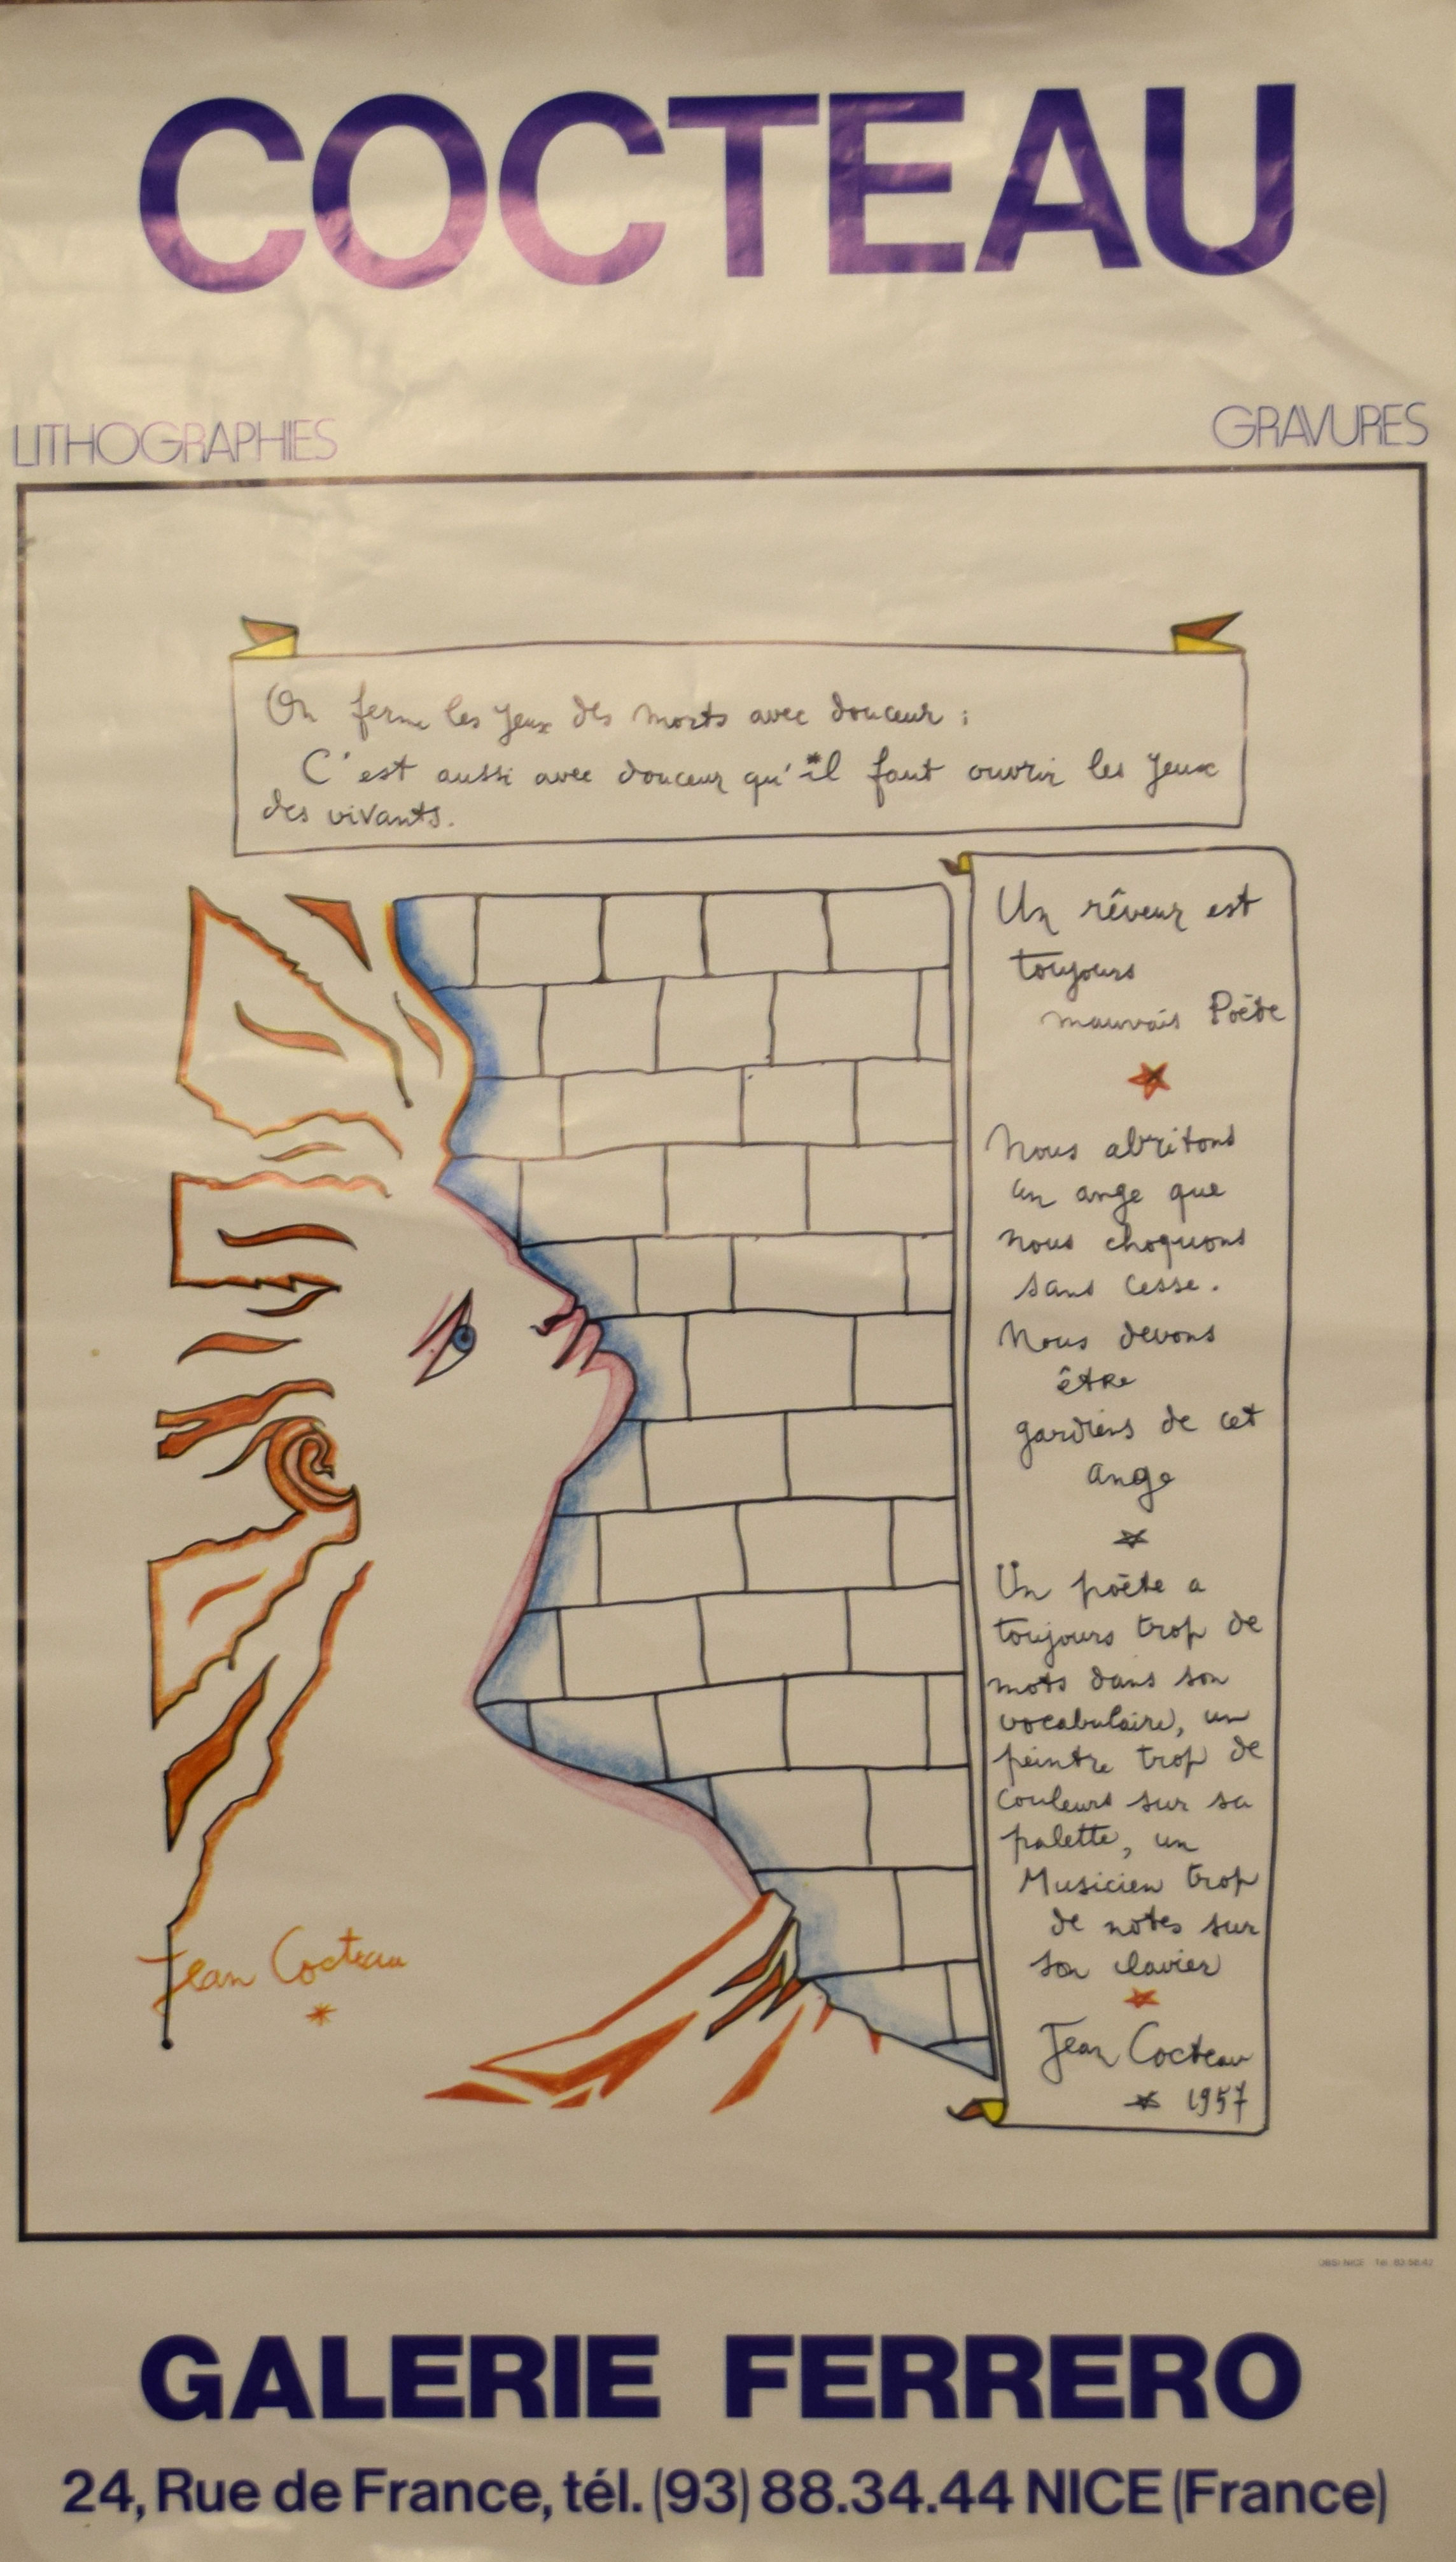 COCTEAU
LITHOGRAPHIES
GRAVURES
On ferme les yeux des morts avec douceur ;
C'est aussi avec douceur qu'il faut ouvrir les yeux
des vivants.
Un rêveur est
toujours
mauvais Poëte
Nous abritons
un ange que
nous choquons
sans cesse.
Nous devons
être
gardiens de cet
ange
Un poëte a
toujours trop de
mots dans son
vocabulaire, un
peintre trop de
couleurs sur sa
palette, un
Musicien trop
de notes sur
son clavier
Jean Cocteau
1957
Jean Cocteau
GALERIE FERRERO
24, Rue de France, tél. (93) 88.34.44 NICE (France)